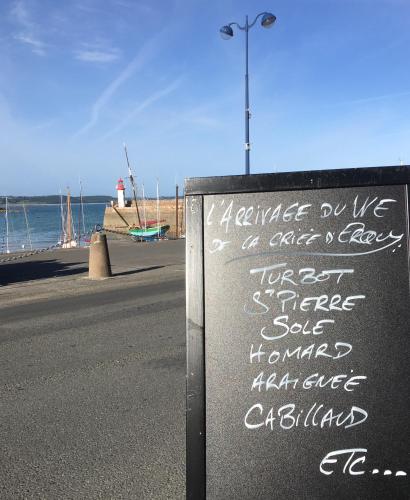 L'ARRIVAGE DU WE
DE LA CRIÉE D'ERQUY
TURBOT
ST PIERRE
SOLE
HOMARD
ARAIGNÉE
CABILLAUD
ETC...